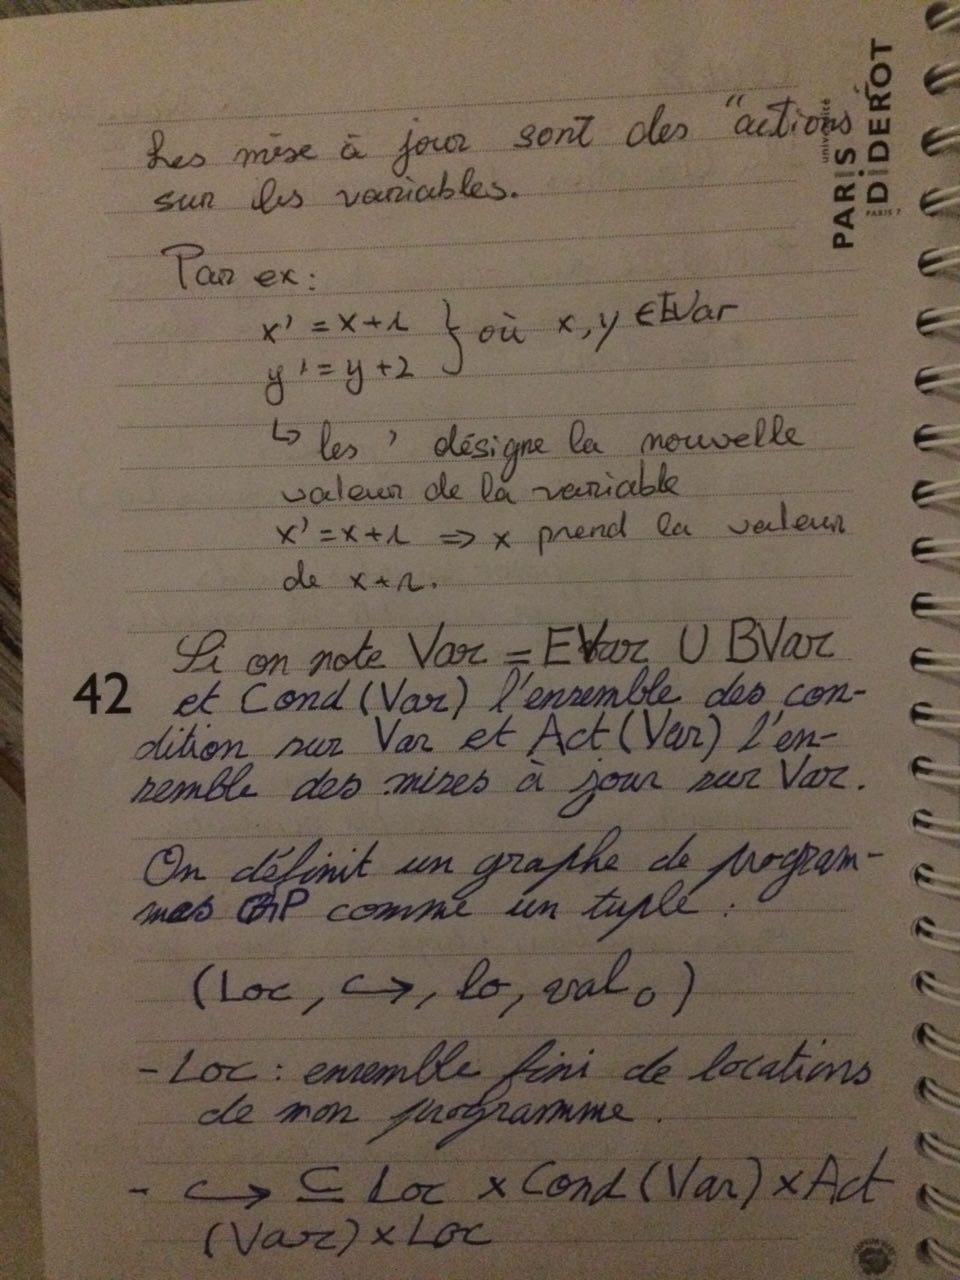 université
PARIS
DIDEROT
PARIS 7
Les mise à jour sont des "actions"
sur les variables.
Par ex:
x' = x+1 } où x, y ∈ EVar
y' = y+2
↳ les ' désigne la nouvelle
valeur de la variable
x' = x+1 => x prend la valeur
de x+1.
Si on note Var = EVar ∪ BVar
42
et Cond (Var) l'ensemble des con-
dition sur Var et Act (Var) l'en-
semble des mises à jour sur Var.
On définit un graphe de program-
mes GP comme un tuple :
(Loc, ↪, lo, val₀)
- Loc : ensemble fini de locations
de mon programme.
- ↪ ⊆ Loc × Cond (Var) × Act
(Var) × Loc